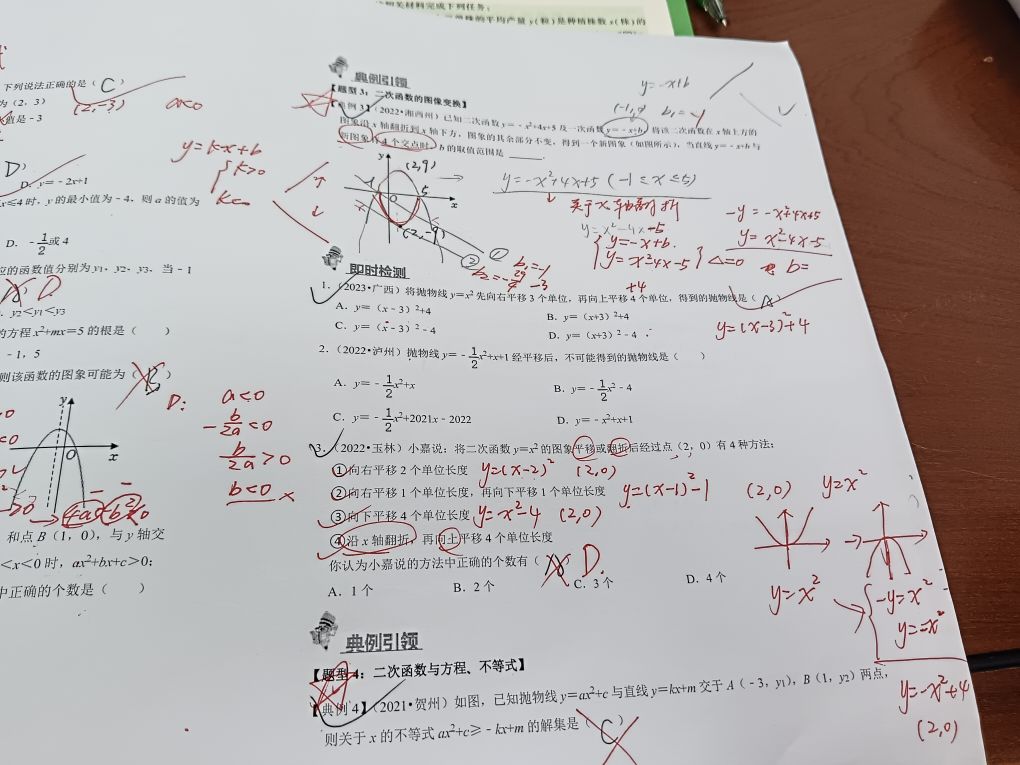 下列说法正确的是（ C ）
为（2，3） （2，-3） a<0
值是-3
D）
D．y=-2x+1
x≤4时，y的最小值为-4，则a的值为
D．-1/2或4
应的函数值分别为y₁，y₂，y₃，当-1
D
y₂<y₁<y₃
的方程x²+mx=5的根是（ ）
-1，5
则该函数的图象可能为（ B ）
y
O
x
4a b²
和点B（1，0），与y轴交
<x<0时，ax²+bx+c>0；
中正确的个数是（ ）
y=kx+b
k>0
k<
D: a<0
-b/2a<0
b/2a>0
b<0 ×
相关材料完成下列任务：
单株的平均产量y（粒）是种植株数x（株）的
典例引领
【题型3：二次函数的图像变换】
y=-x+b
（-1，0） b₁=-1
【典例3】（2022•湘西州）已知二次函数y=-x²+4x+5及一次函数y=-x+b，将该二次函数在x轴上方的
图象沿x轴翻折到x轴下方，图象的其余部分不变，得到一个新图象（如图所示），当直线y=-x+b与
新图象有4个交点时，b的取值范围是 ______．
y
(2,9)
-1 O 5 x
(2,-9)
① ②
b₁=-1
b₂=-29/4 -3
y=-x²+4x+5（-1≤x≤5）
↓ 关于x轴翻折
y=x²-4x-5
y=-x+b.
y=x²-4x-5 } △=0 b=
-y=-x²+4x+5
y=x²-4x-5
即时检测
+4
1．（2023•广西）将抛物线y=x²先向右平移3个单位，再向上平移4个单位，得到的抛物线是（ A ）
A．y=（x-3）²+4 B．y=（x+3）²+4
C．y=（x-3）²-4 D．y=（x+3）²-4
y=(x-3)²+4
2．（2022•泸州）抛物线y=-1/2x²+x+1经平移后，不可能得到的抛物线是（ ）
A．y=-1/2x²+x B．y=-1/2x²-4
C．y=-1/2x²+2021x-2022 D．y=-x²+x+1
3．（2022•玉林）小嘉说：将二次函数y=x²的图象平移或翻折后经过点（2，0）有4种方法：
①向右平移2个单位长度 y=(x-2)² (2,0)
②向右平移1个单位长度，再向下平移1个单位长度 y=(x-1)²-1 (2,0) y=x²
③向下平移4个单位长度 y=x²-4 (2,0)
④沿x轴翻折，再向上平移4个单位长度
你认为小嘉说的方法中正确的个数有（ ） D.
A．1个 B．2个 C．3个 D．4个
y=x²
-y=x²
y=-x²
y=-x²+4
(2,0)
典例引领
【题型4：二次函数与方程、不等式】
【典例4】（2021•贺州）如图，已知抛物线y=ax²+c与直线y=kx+m交于A（-3，y₁），B（1，y₂）两点，
则关于x的不等式ax²+c≥-kx+m的解集是（ C ）